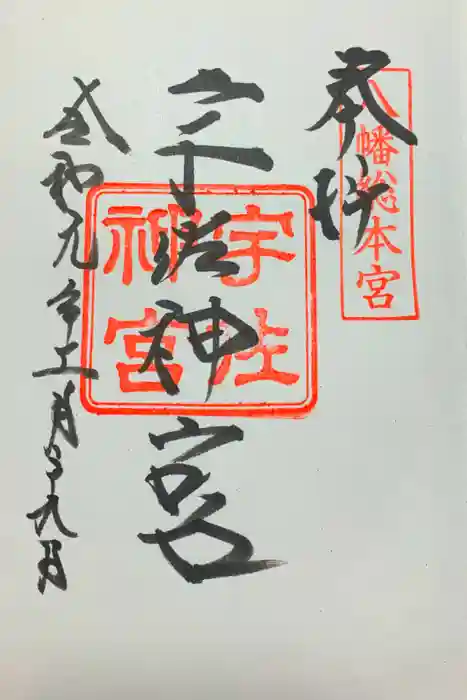 奉拝
八幡総本宮
宇佐神宮
宇佐
神宮
令和元年十一月廿九日